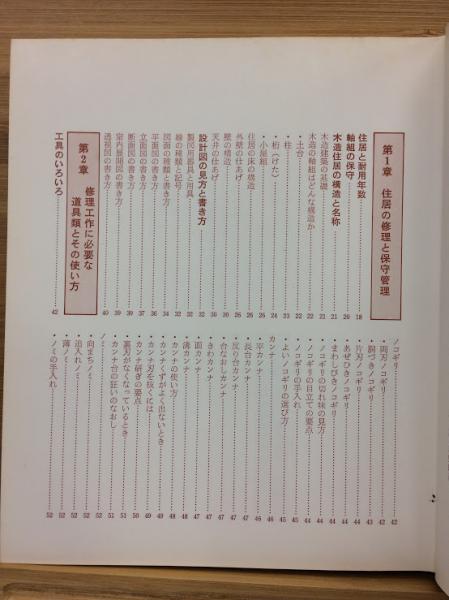 第1章 住居の修理と保守管理
住居と耐用年数……18
軸組の保守……20
木造住居の構造と名称……21
木造建築の基礎
木造の軸組はどんな構造か
・土台
・柱
・桁(けた)
・小屋組
住居の床の構造
外壁の仕上げ
壁の構造
天井の仕あげ
設計図の見方と書き方
製図用器具と用具
線の種類と記号
図面の種類と書き方
平面図の書き方
立面図の書き方
断面図の書き方
室内展開図の書き方
透視図の書き方……40
第2章 修理工作に必要な
道具類とその使い方
工具のいろいろ……42
ノコギリ……42
・両刃ノコギリ……42
・胴づきノコギリ
・片刃ノコギリ
・あぜびきノコギリ
・まわしびきノコギリ
・ノコギリの切れ味の見方
・ノコギリの目立ての要点
・ノコギリの手入れ
・よいノコギリの選び方
カンナ
・平カンナ
・長台カンナ
・反り台カンナ
・台なおしカンナ
・きわカンナ
・面カンナ
・溝カンナ
・カンナの使い方
・カンナくずがよく出ないとき
・カンナ刃を抜くには
・カンナ研ぎの要点
・裏刃がなくなっているとき
・カンナ台の狂いのなおし
ノミ
・向まちノミ……52
・追入れノミ……52
・薄ノミ……52
・ノミの手入れ……52